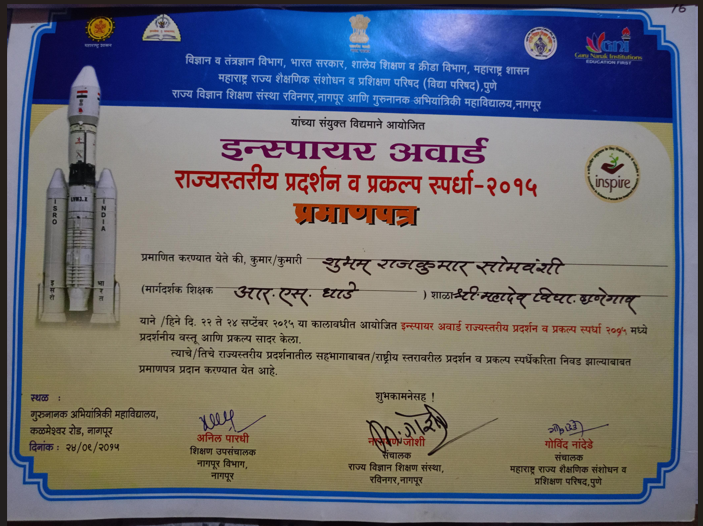 16
महाराष्ट्र शासन
Guru Nanak Institutions
EDUCATION FIRST
विज्ञान व तंत्रज्ञान विभाग, भारत सरकार, शालेय शिक्षण व क्रीडा विभाग, महाराष्ट्र शासन
महाराष्ट्र राज्य शैक्षणिक संशोधन व प्रशिक्षण परिषद (विद्या परिषद),पुणे
राज्य विज्ञान शिक्षण संस्था रविनगर,नागपूर आणि गुरुनानक अभियांत्रिकी महाविद्यालय,नागपूर
यांच्या संयुक्त विद्यमाने आयोजित
इन्स्पायर अवार्ड
राज्यस्तरीय प्रदर्शन व प्रकल्प स्पर्धा-२०१५
प्रमाणपत्र
inspire
ISRO
INDIA
इसरो
भारत
प्रमाणित करण्यात येते की, कुमार/कुमारी शुभम् राजकुमार सोमवंशी
(मार्गदर्शक शिक्षक आर.एस. धाडे ) शाळा श्री.महादेव विद्या. दाणेगाव
याने /हिने दि. २२ ते २४ सप्टेंबर २०१५ या कालावधीत आयोजित इन्स्पायर अवार्ड राज्यस्तरीय प्रदर्शन व प्रकल्प स्पर्धा २०१५ मध्ये
प्रदर्शनीय वस्तू आणि प्रकल्प सादर केला.
त्याचे/तिचे राज्यस्तरीय प्रदर्शनातील सहभागाबाबत/राष्ट्रीय स्तरावरील प्रदर्शन व प्रकल्प स्पर्धेकरिता निवड झाल्याबाबत
प्रमाणपत्र प्रदान करण्यात येत आहे.
शुभकामनेसह !
स्थळ :
गुरुनानक अभियांत्रिकी महाविद्यालय,
कळमेश्वर रोड, नागपूर
दिनांक : २४/०९/२०१५
अनिल पारधी
शिक्षण उपसंचालक
नागपूर विभाग,
नागपूर
नारायण जोशी
संचालक
राज्य विज्ञान शिक्षण संस्था,
रविनगर,नागपूर
गोविंद नांदेडे
संचालक
महाराष्ट्र राज्य शैक्षणिक संशोधन व
प्रशिक्षण परिषद,पुणे